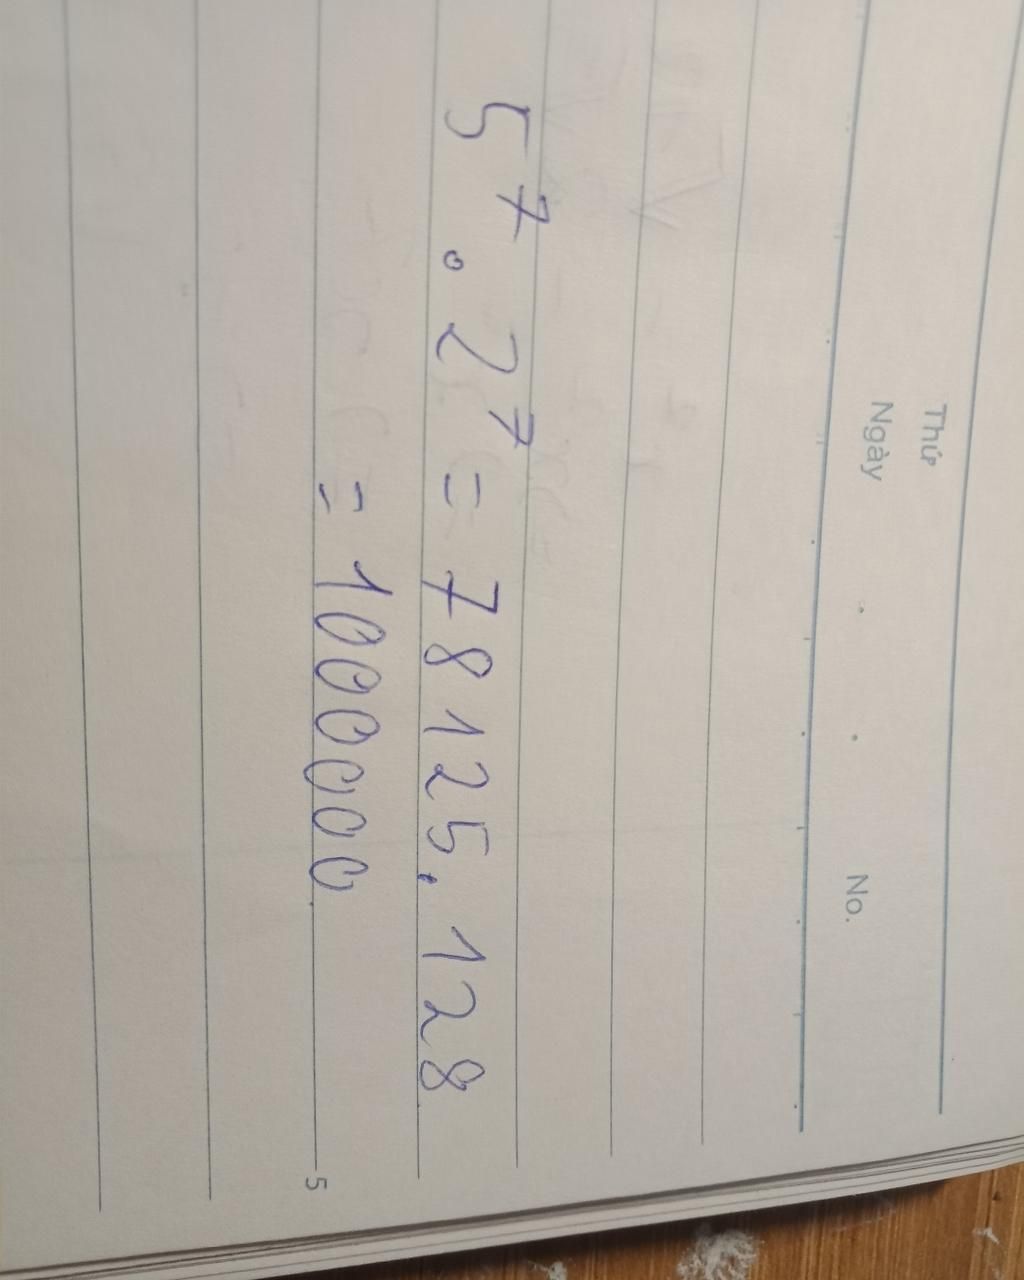 Thứ
Ngày . . No.
5⁷ . 2⁷ = 78125 . 128
= 1000000
5